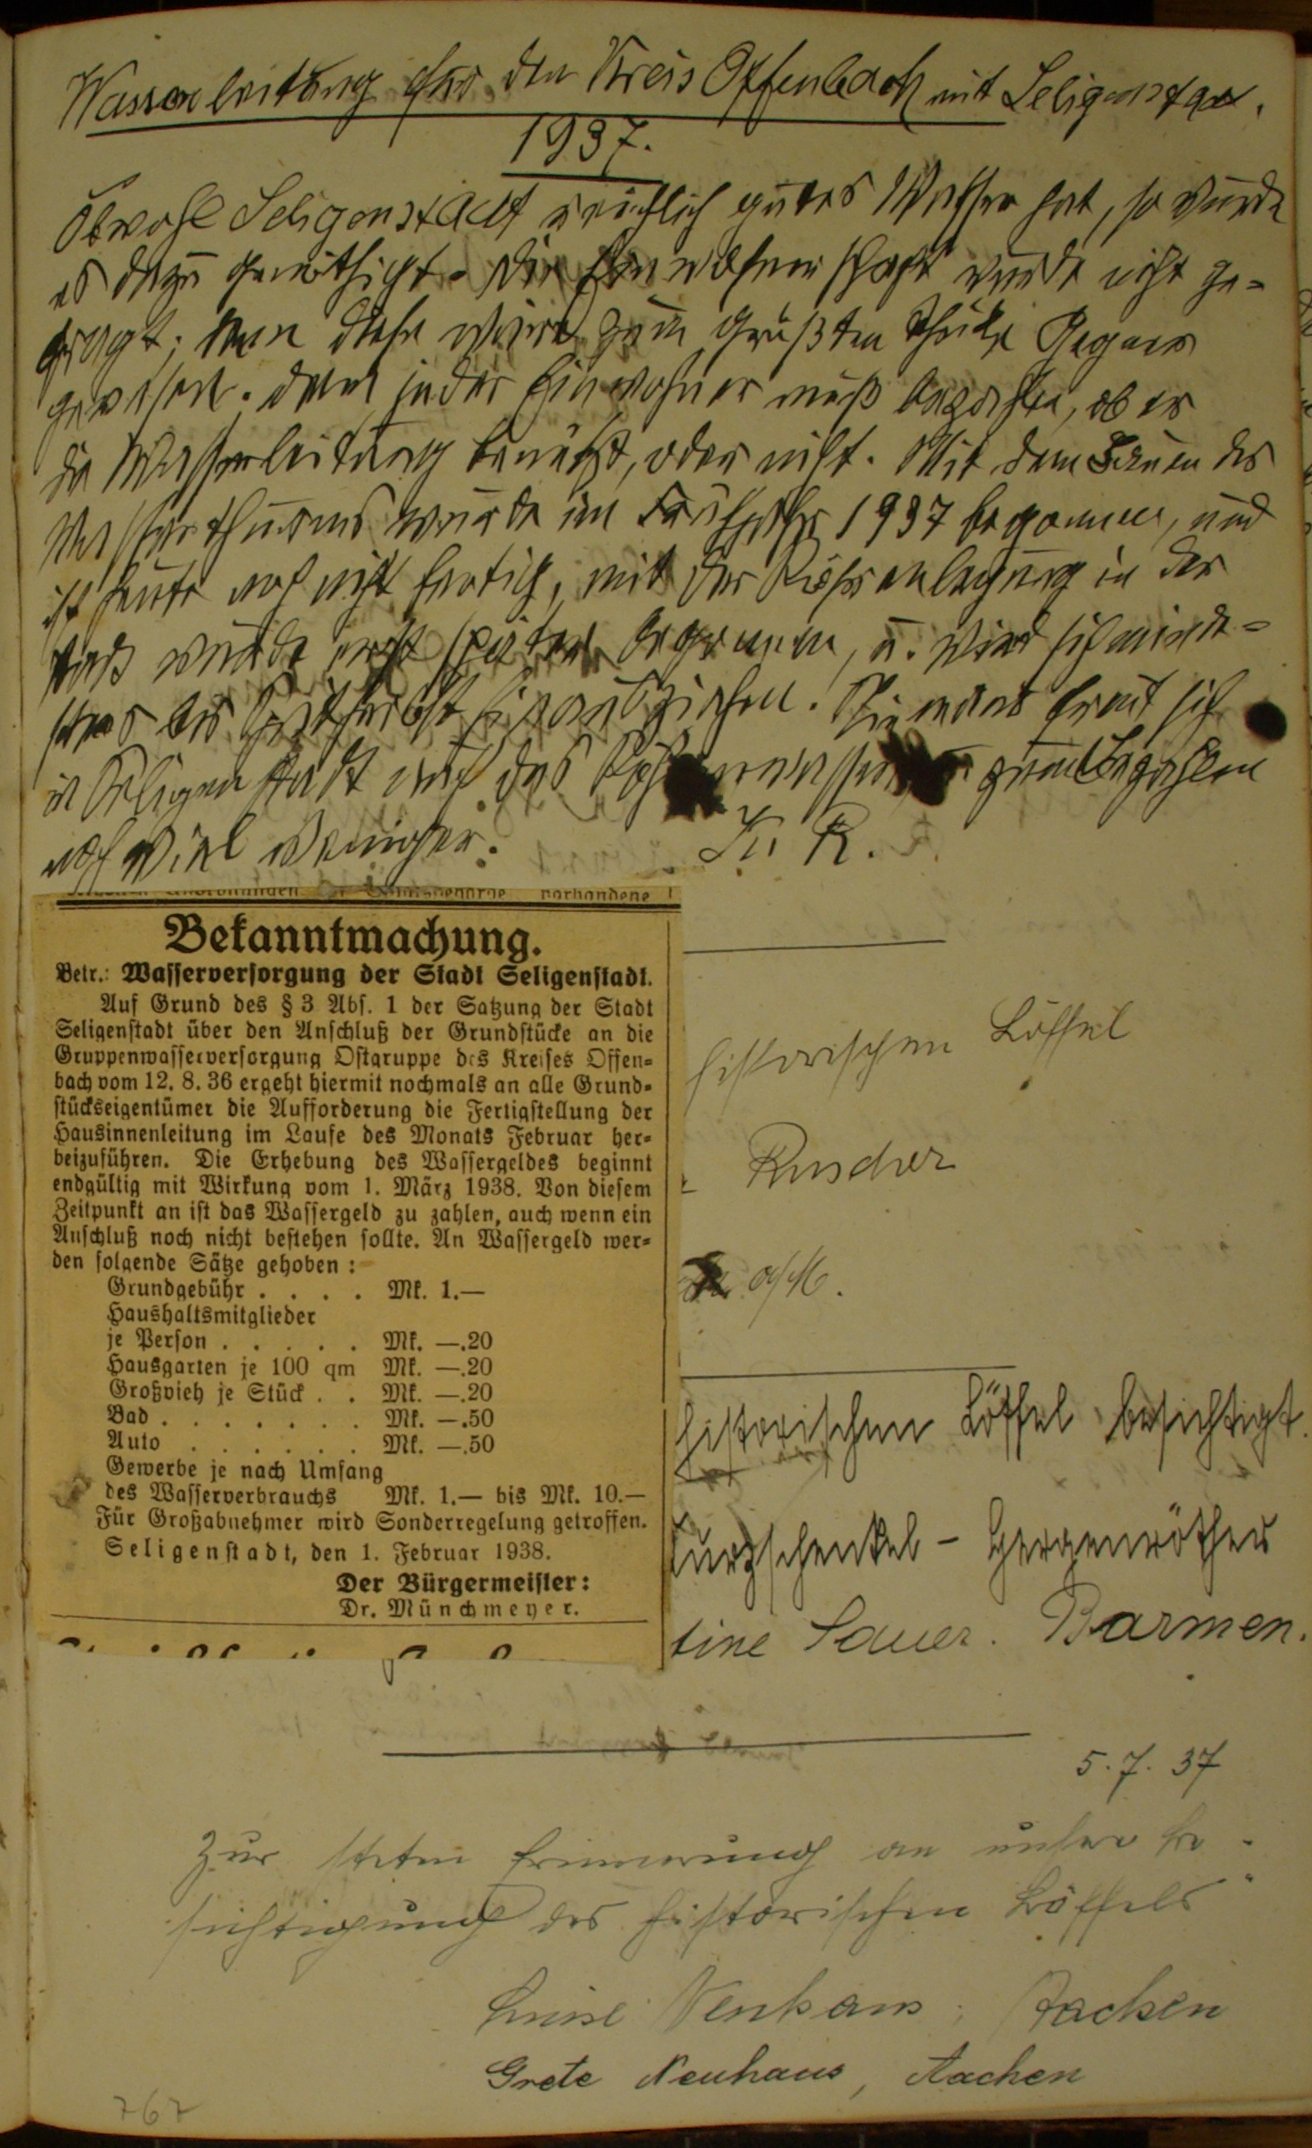 Wasserleitung für den Kreis Offenbach mit Seligenstadt.
1937.
Obwohl Seligenstadt reichlich gutes Wasser hat, so wurde
es dazu genöthigt. Die Einwohnerschaft wurde nicht ge-
fragt; denn diese wäre zum größten Theile Gegner
gewesen. denn jeder Einwohner muß bezahlen, ob er
die Wasserleitung benützt, oder nicht. Mit dem Bauen des
Wasserthurms wurde im Frühjahr 1937 begonnen, und
ist heute noch nicht fertig, mit der Röhrenlegung in der
Stadt wurde erst später begonnen, u. wird sich minde-
stens bis Spätherbst hinausziehen. Niemand freut sich
in Seligenstadt auf das zum Bezahlen
noch viel weniger. K. R.
vorhandene
Bekanntmachung.
Betr.: Wasserversorgung der Stadt Seligenstadt.
Auf Grund des § 3 Abs. 1 der Satzung der Stadt
Seligenstadt über den Anschluß der Grundstücke an die
Gruppenwasserversorgung Ostgruppe des Kreises Offen-
bach vom 12. 8. 36 ergeht hiermit nochmals an alle Grund-
stückseigentümer die Aufforderung die Fertigstellung der
Hausinnenleitung im Laufe des Monats Februar her-
beizuführen. Die Erhebung des Wassergeldes beginnt
endgültig mit Wirkung vom 1. März 1938. Von diesem
Zeitpunkt an ist das Wassergeld zu zahlen, auch wenn ein
Anschluß noch nicht bestehen sollte. An Wassergeld wer-
den folgende Sätze gehoben:
Grundgebühr . . . . Mk. 1.—
Haushaltsmitglieder
je Person . . . . . Mk. —.20
Hausgarten je 100 qm Mk. —.20
Großvieh je Stück . . Mk. —.20
Bad . . . . . . . Mk. —.50
Auto . . . . . . Mk. —.50
Gewerbe je nach Umfang
des Wasserverbrauchs Mk. 1.— bis Mk. 10.—
Für Großabnehmer wird Sonderregelung getroffen.
Seligenstadt, den 1. Februar 1938.
Der Bürgermeister:
Dr. Münchmeyer.
historischen Löffel
Ruscher
a/M.
historischen Löffel besichtigt.
Kurzschenkel - Gergenröther
tine Sauer. Barmen.
5. 7. 37
Zur steten Erinnerung an unsere be-
sichtigung des historischen Löffels
Luise Neuhaus, Aachen
Grete Neuhaus, Aachen
767